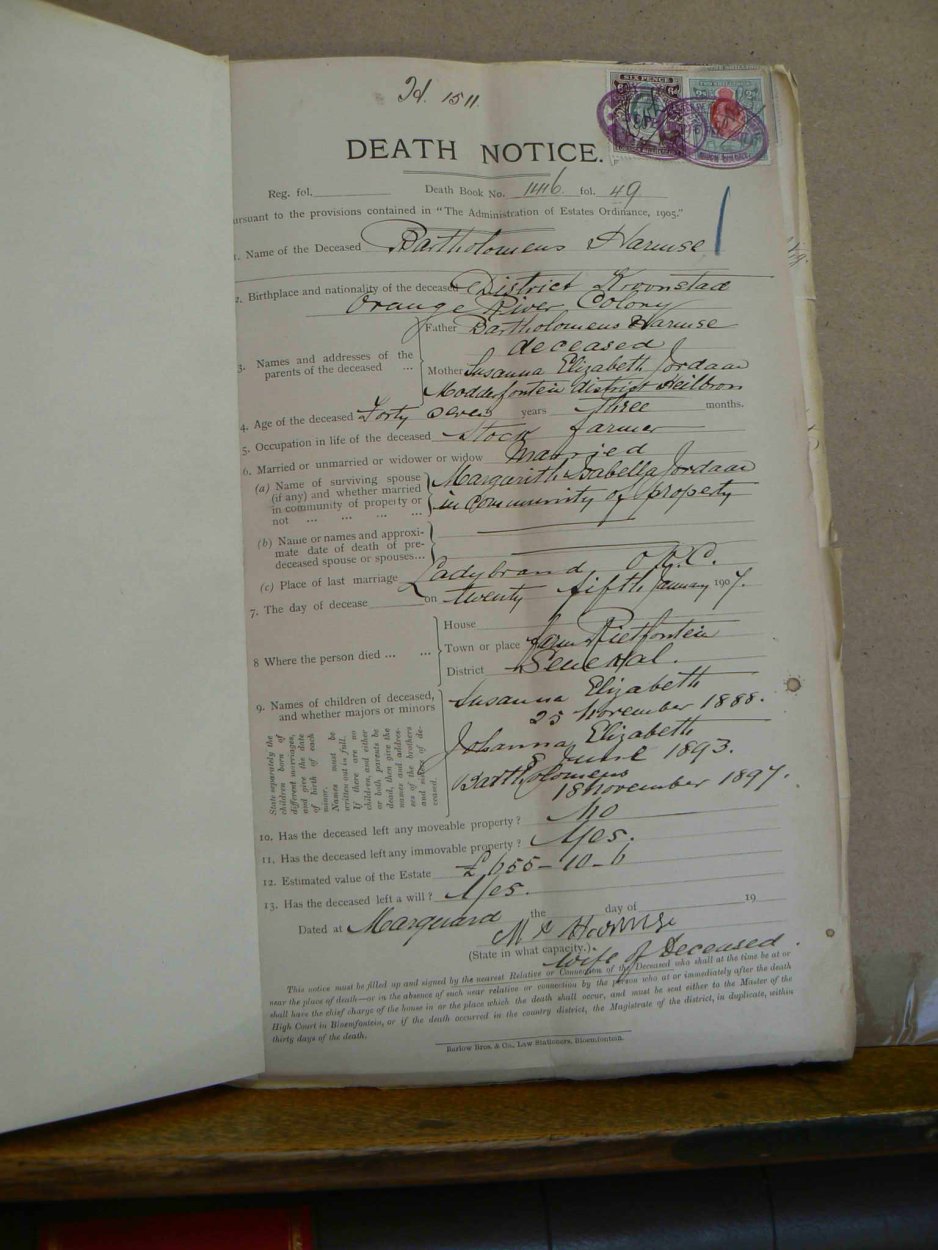 1511.
SIX PENCE
DEATH NOTICE.
Reg. fol. Death Book No. 1446 fol. 49
ursuant to the provisions contained in "The Administration of Estates Ordinance, 1905."
1. Name of the Deceased Bartholomeus Harmse
2. Birthplace and nationality of the deceased District Kroonstad
Orange River Colony
Father Bartholomeus Harmse
deceased
3. Names and addresses of the parents of the deceased ...
Mother Susanna Elizabeth Jordaan
Modderfontein district Heilbron
4. Age of the deceased Forty seven years three months.
5. Occupation in life of the deceased Stock farmer
6. Married or unmarried or widower or widow Married
(a) Name of surviving spouse Margarith Isabella Jordaan
(if any) and whether married in community of property
in community of property or
not ... ... ... ...
(b) Name or names and approxi-
mate date of death of pre-
deceased spouse or spouses...
(c) Place of last marriage Ladybrand O.R.C.
7. The day of decease on twenty fifth January 1907.
House
8 Where the person died ... ... Town or place farm Rietfontein
District Senekal.
9. Names of children of deceased, and whether majors or minors
State separately the
children born of
different marriages,
and give the date
of birth of each
minor.
Names must be
written out in full.
If there are no
children, and either
or both parents be
dead, then give the
names and address-
es of the brothers
and sisters of de-
ceased.
Susanna Elizabeth
25 November 1888.
Johanna Elizabeth
8 June 1893.
Bartholomeus
18 November 1897.
10. Has the deceased left any moveable property? No
11. Has the deceased left any immovable property? Yes.
12. Estimated value of the Estate £655-10-6
13. Has the deceased left a will? Yes.
Dated at Marquard the day of 19
Harmse
(State in what capacity.) Wife of Deceased.
This notice must be filled up and signed by the nearest Relative or Connection of the Deceased who shall at the time be at or
near the place of death—or in the absence of such near relative or connection by the person who at or immediately after the death
shall have the chief charge of the house in or the place which the death shall occur, and must be sent either to the Master of the
High Court in Bloemfontein, or if the death occurred in the country district, the Magistrate of the district, in duplicate, within
thirty days of the death.
Barlow Bros. & Co., Law Stationers, Bloemfontein.